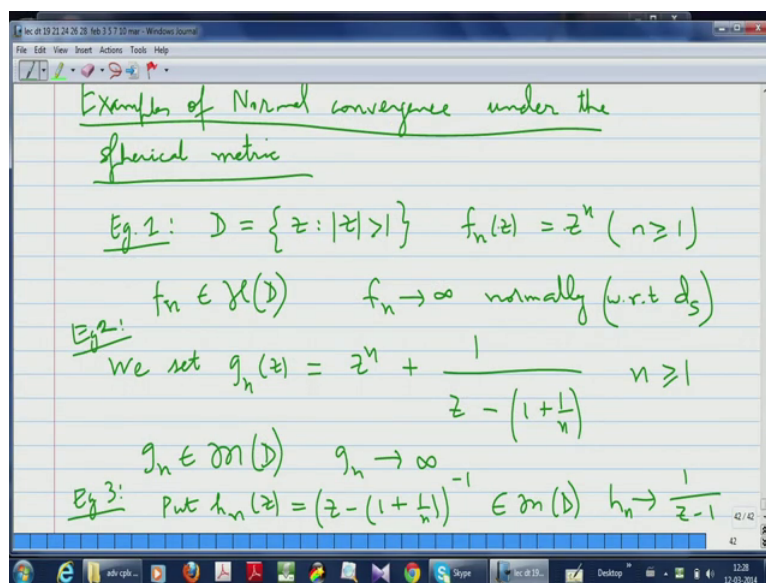 lec dt 19 21 24 26 28 feb 3 5 7 10 mar - Windows Journal
File Edit View Insert Actions Tools Help
Examples of Normal convergence under the
spherical metric
Eg. 1: D = { z : |z| > 1 } f_n(z) = z^n ( n ≥ 1 )
f_n ∈ H(D) f_n → ∞ normally (w.r.t d_s)
Eg 2:
We set g_n(z) = z^n + 1 / (z - (1 + 1/n)) n ≥ 1
g_n ∈ m(D) g_n → ∞
Eg 3: Put h_n(z) = (z - (1 + 1/n))^-1 ∈ m(D) h_n → 1 / (z - 1)
42 / 42
42
adv cplx ...
Skype
lec dt 19...
Desktop
12:28
12-03-2014